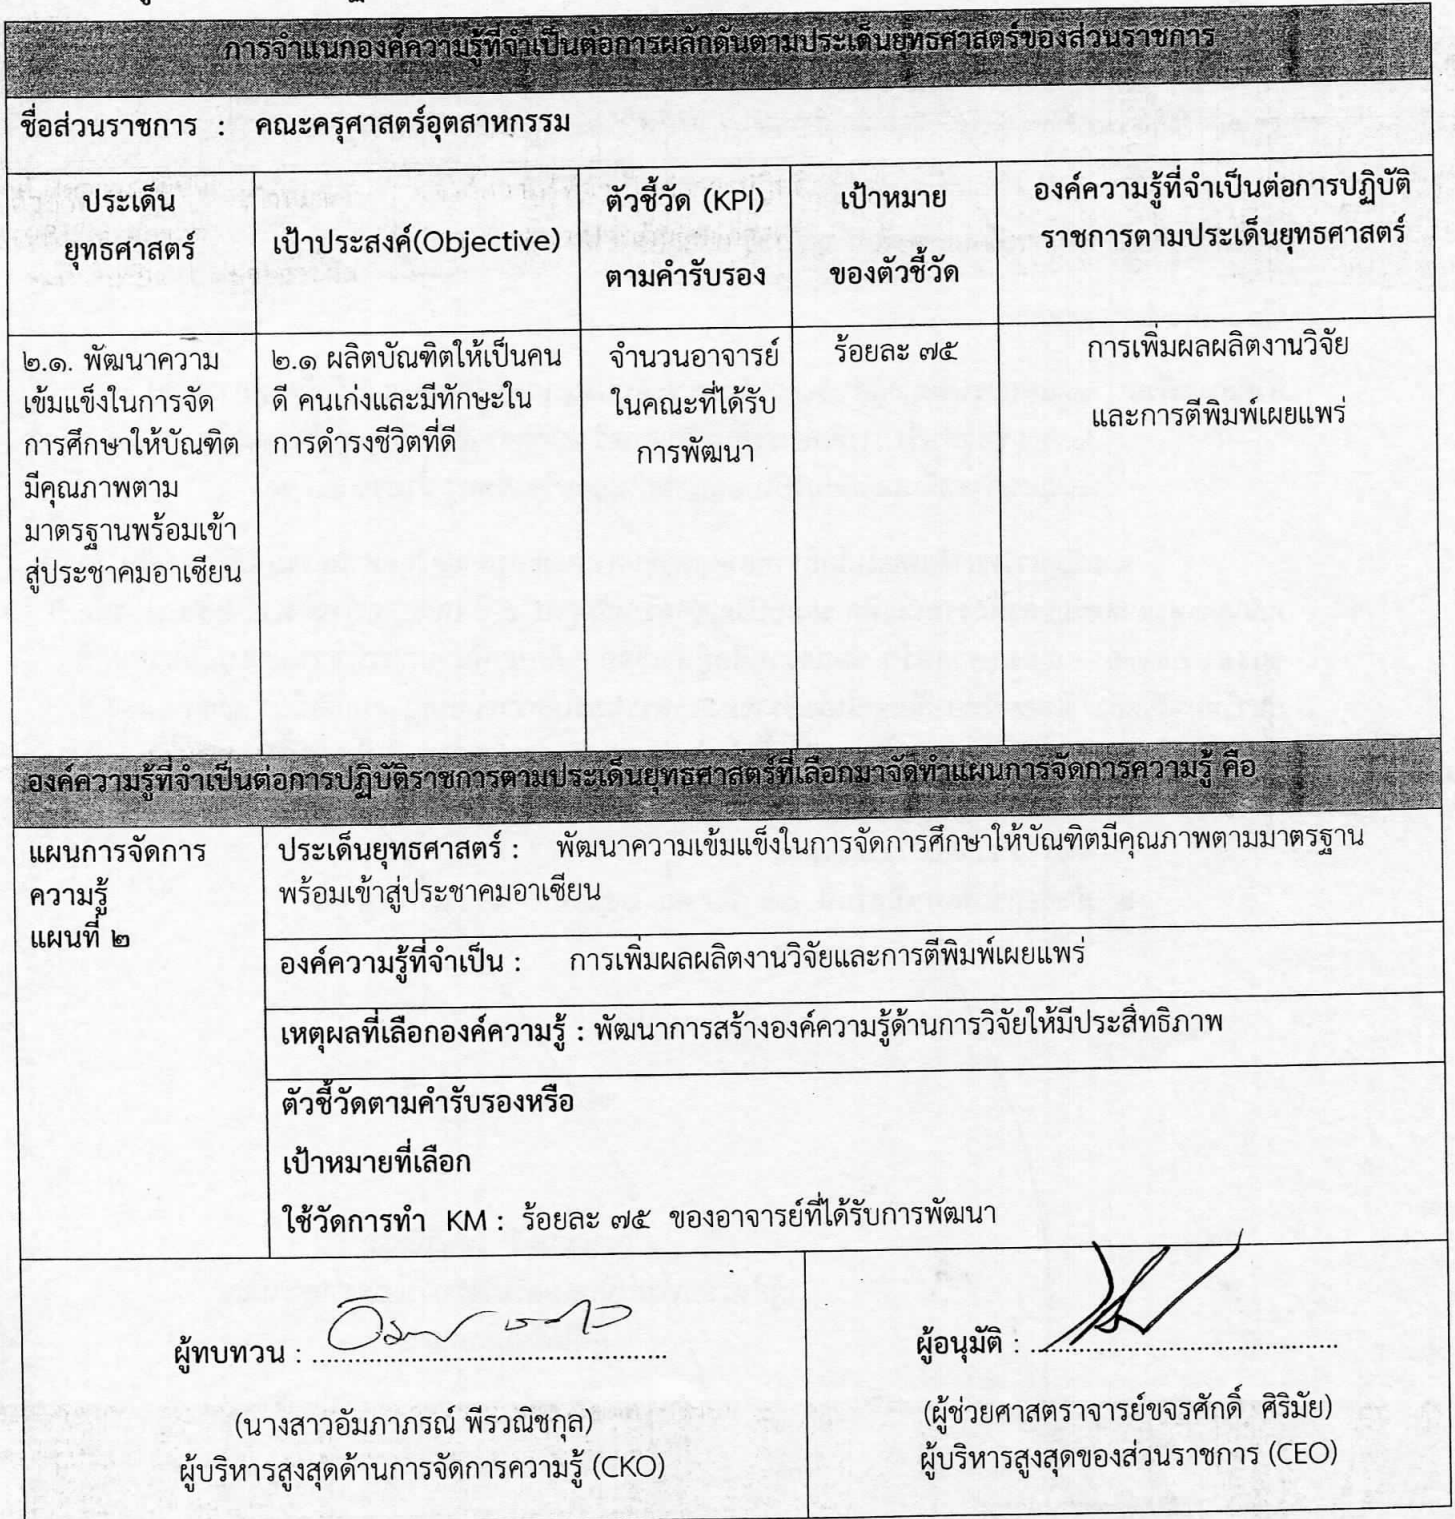 การจำแนกองค์ความรู้ที่จำเป็นต่อการผลักดันตามประเด็นยุทธศาสตร์ของส่วนราชการ
ชื่อส่วนราชการ : คณะครุศาสตร์อุตสาหกรรม
ประเด็น
ยุทธศาสตร์
เป้าประสงค์(Objective)
ตัวชี้วัด (KPI)
ตามคำรับรอง
เป้าหมาย
ของตัวชี้วัด
องค์ความรู้ที่จำเป็นต่อการปฏิบัติ
ราชการตามประเด็นยุทธศาสตร์
๒.๑. พัฒนาความ
เข้มแข็งในการจัด
การศึกษาให้บัณฑิต
มีคุณภาพตาม
มาตรฐานพร้อมเข้า
สู่ประชาคมอาเซียน
๒.๑ ผลิตบัณฑิตให้เป็นคน
ดี คนเก่งและมีทักษะใน
การดำรงชีวิตที่ดี
จำนวนอาจารย์
ในคณะที่ได้รับ
การพัฒนา
ร้อยละ ๗๕
การเพิ่มผลผลิตงานวิจัย
และการตีพิมพ์เผยแพร่
องค์ความรู้ที่จำเป็นต่อการปฏิบัติราชการตามประเด็นยุทธศาสตร์ที่เลือกมาจัดทำแผนการจัดการความรู้ คือ
แผนการจัดการ
ความรู้
แผนที่ ๒
ประเด็นยุทธศาสตร์ : พัฒนาความเข้มแข็งในการจัดการศึกษาให้บัณฑิตมีคุณภาพตามมาตรฐาน
พร้อมเข้าสู่ประชาคมอาเซียน
องค์ความรู้ที่จำเป็น : การเพิ่มผลผลิตงานวิจัยและการตีพิมพ์เผยแพร่
เหตุผลที่เลือกองค์ความรู้ : พัฒนาการสร้างองค์ความรู้ด้านการวิจัยให้มีประสิทธิภาพ
ตัวชี้วัดตามคำรับรองหรือ
เป้าหมายที่เลือก
ใช้วัดการทำ KM : ร้อยละ ๗๕ ของอาจารย์ที่ได้รับการพัฒนา
ผู้ทบทวน : ................................................
(นางสาวอัมภาภรณ์ พีรวณิชกุล)
ผู้บริหารสูงสุดด้านการจัดการความรู้ (CKO)
ผู้อนุมัติ : ................................................
(ผู้ช่วยศาสตราจารย์ขจรศักดิ์ ศิริมัย)
ผู้บริหารสูงสุดของส่วนราชการ (CEO)